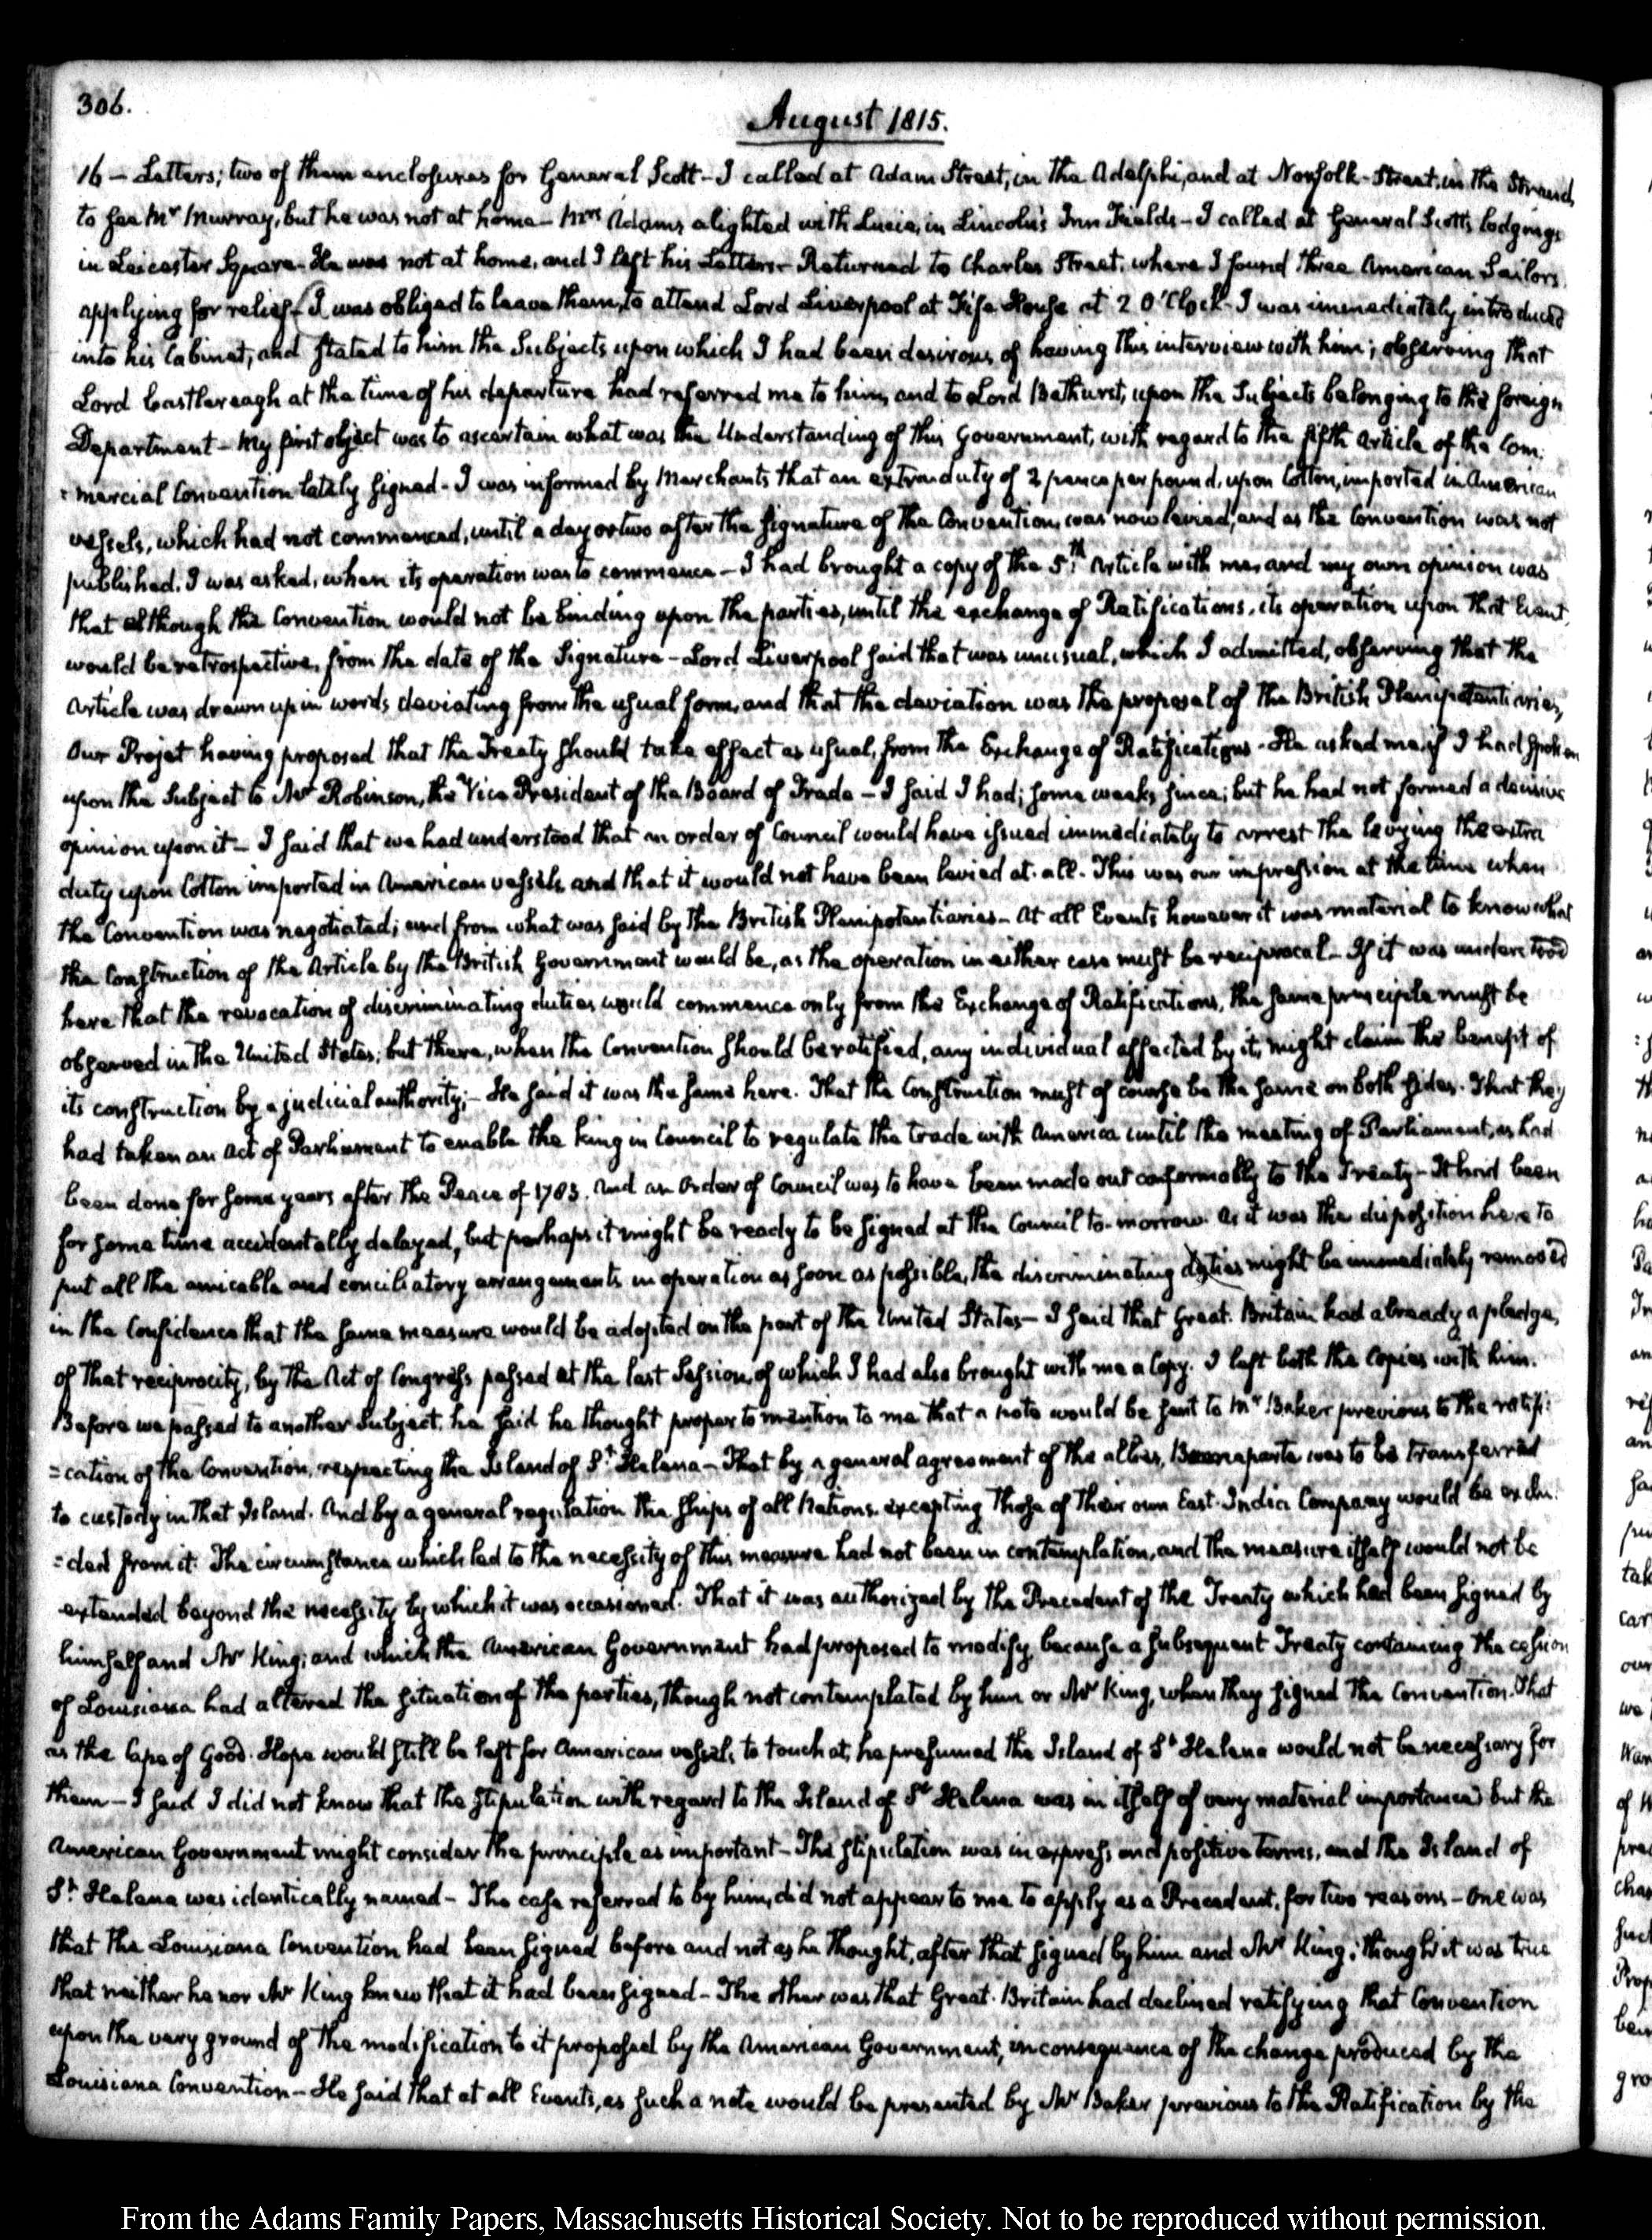 306.
August 1815.
16 – Letters; two of them enclosures for General Scott – I called at Adam Street, in the Adelphi, and at Norfolk-Street, in the Strand,
to see Mr Murray, but he was not at home – Mrs Adams alighted with Lucia, in Lincoln's Inn Fields – I called at General Scott's lodgings
in Leicester Square – He was not at home, and I left his Letters – Returned to Charles Street, where I found three American Sailors,
applying for relief – (I was obliged to leave them, to attend Lord Liverpool at Fife House at 2 O'Clock – I was immediately introduced
into his Cabinet, and stated to him the Subjects upon which I had been desirous of having this interview with him; observing that
Lord Castlereagh at the time of his departure had referred me to him, and to Lord Bathurst, upon the Subjects belonging to the foreign
Department – My first object was to ascertain what was the Understanding of this Government, with regard to the fifth Article of the Com:
:mercial Convention lately signed – I was informed by Merchants that an extra duty of 2 pence per pound, upon Cotton, imported in American
vessels, which had not commenced, until a day or two after the signature of the Convention, was now levied, and as the Convention was not
published, I was asked, when its operation was to commence – I had brought a copy of the 5th Article with me, and my own opinion was
that although the Convention would not be binding upon the parties, until the exchange of Ratifications, its operation upon that Event,
would be retrospective, from the date of the Signature – Lord Liverpool said that was unusual, which I admitted, observing that the
Article was drawn up in words deviating from the usual form, and that the deviation was the proposal of the British Plenipotentiaries,
Our Projet having proposed that the Treaty should take effect as usual, from the Exchange of Ratifications – He asked me if I had spoken
upon the Subject to Mr Robinson, the Vice President of the Board of Trade – I said I had; some weeks since; but he had not formed a decisive
opinion upon it – I said that we had understood that an order of Council would have issued immediately to arrest the levying the extra
duty upon Cotton imported in American vessels and that it would not have been levied at all – This was our impression at the time when
the Convention was negotiated; and from what was said by the British Plenipotentiaries – At all Events however it was material to know what
the Construction of the Article by the British Government would be, as the operation in either case must be reciprocal – If it was understood
here that the revocation of discriminating duties would commence only from the Exchange of Ratifications, the same principle must be
observed in the United States; but there, when the Convention should be ratified, any individual affected by it, might claim the benefit of
its construction by a judicial authority; – He said it was the same here. That the Construction must of course be the same on both sides. That they
had taken an Act of Parliament to enable the King in Council to regulate the trade with America until the meeting of Parliament, as had
been done for some years after the Peace of 1783. And an Order of Council was to have been made out conformably to the Treaty – It had been
for some time accidentally delayed, but perhaps it might be ready to be signed at the Council to-morrow. As it was the disposition here to
put all the amicable and conciliatory arrangements in operation as soon as possible, the discriminating duties might be immediately removed
in the Confidence that the same measure would be adopted on the part of the United States – I said that Great-Britain had already a pledge,
of that reciprocity, by the Act of Congress passed at the last Session, of which I had also brought with me a Copy. I left both the Copies with him.
Before we passed to another Subject, he said he thought proper to mention to me that a note would be sent to Mr Baker previous to the ratifi:
=cation of the Convention, respecting the Island of St Helena – That by a general agreement of the allies, Buonaparte was to be transferred
to custody in that Island. And by a general regulation the ships of all Nations, excepting those of their own East-India Company would be exclu:
=ded from it. The circumstance which led to the necessity of this measure had not been in contemplation, and the measure itself would not be
extended beyond the necessity by which it was occasioned. That it was authorized by the Precedent of the Treaty which had been signed by
himself and Mr King; and which the American Government had proposed to modify because a subsequent Treaty containing the cession
of Louisiana had altered the situation of the parties, though not contemplated by him or Mr King, when they signed the Convention. That
as the Cape of Good-Hope would still be left for American vessels to touch at, he presumed the Island of St Helena would not be necessary for
them – I said I did not know that the stipulation with regard to the Island of St Helena was in itself of very material importance) but the
American Government might consider the principle as important – The stipulation was in express and positive terms, and the Island of
St Helena was identically named – The case referred to by him, did not appear to me to apply as a Precedent, for two reasons – One was
that the Louisiana Convention had been signed before and not as he thought, after that signed by him and Mr King; though it was true
that neither he nor Mr King knew that it had been signed – The other was that Great-Britain had declined ratifying that Convention
upon the very ground of the modification to it proposed by the American Government, in consequence of the change produced by the
Louisiana Convention – He said that at all Events, as such a note would be presented by Mr Baker previous to the Ratification by the
From the Adams Family Papers, Massachusetts Historical Society. Not to be reproduced without permission.